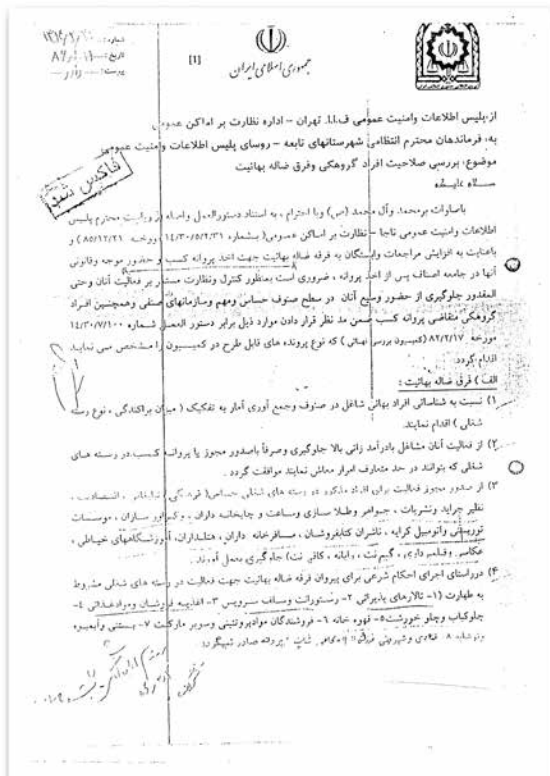 شماره:
تاریخ:
پیوست:
[1]
جمهوری اسلامی ایران
از: پلیس اطلاعات وامنیت عمومی ف.ا.ا. تهران – اداره نظارت بر اماکن عمومی
به: فرماندهان محترم انتظامی شهرستانهای تابعه – روسای پلیس اطلاعات وامنیت عمومی
موضوع: بررسی صلاحیت افراد گروهکی وفرق ضاله بهائیت
فاکس شد
سلام علیکم
باصلوات برمحمد وآل محمد (ص) وبا احترام ، به استناد دستورالعمل واصله از ریاست محترم پلیس
اطلاعات وامنیت عمومی ناجا – نظارت بر اماکن عمومی( بشماره ۱۴/۳۰/۵/۲/۳۱ ورخه ۸۵/۱۲/۲۱ ) و
باعنایت به افزایش مراجعات وابستگان به فرقه ضاله بهائیت جهت اخذ پروانه کسب و حضور موجه وقانونی
آنها در جامعه اصناف پس از اخذ پروانه ، ضروری است بمنظور کنترل ونظارت مستمر بر فعالیت آنان وحتی
المقدور جلوگیری از حضور وسیع آنان در سطح صنوف حساس ومهم وسازمانهای صنفی وهمچنین افراد
گروهکی متقاضی پروانه کسب ضمن مد نظر قرار دادن موارد ذیل برابر دستور العمل شماره ۱۴/۳۰/۷/۱۰۰
مورخه ۸۲/۲/۱۷ (کمیسیون بررسی نهائی ) که نوع پرونده های قابل طرح در کمیسیون را مشخص می نماید
اقدام گردد.
الف ) فرق ضاله بهائیت :
۱) نسبت به شناسائی افراد بهائی شاغل در صنوف وجمع آوری آمار به تفکیک ( میزان پراکندگی ، نوع رسته
شغلی ) اقدام نمایند.
۲) از فعالیت آنان مشاغل بادرآمد زائی بالا جلوگیری وصرفاً باصدور مجوز یا پروانه کسب در رسته های
شغلی که بتوانند در حد متعارف امرار معاش نمایند موافقت گردد .
۳) از صدور مجوز فعالیت برای افراد مذکور در رسته های شغلی حساس( فرهنگی ، تبلیغاتی ، اقتصادی ،
نظیر جراید ونشریات ، جواهر وطلا سازی وساعت و چاپخانه داران ، وگراور سازان ، موسسات
توریستی واتومبیل کرایه ، ناشران کتابفروشان ، مسافرخانه داران ، هتلداران، آموزشگاههای خیاطی ،
عکاسی وفیلمبرداری ، گیم نت ، رایانه ، کافی نت) جلوگیری بعمل آورند .
۴) درراستای اجرای احکام شرعی برای پیروان فرقه ضاله بهائیت جهت فعالیت در رسته های شغلی مشروط
به طهارت (۱- تالارهای پذیرائی ۲- رستورانت وسلف سرویس ۳- اغذیه فروشان وموادغذائی ۴-
چلوکباب وچلو خورشت ۵- قهوه خانه ۶- فروشندگان موادپروتئینی وسوپر مارکت ۷- بستنی وآبمیوه
ونوشابه ۸- قنادی وشیرینی فروشی پروانه صادر نمیگردد.